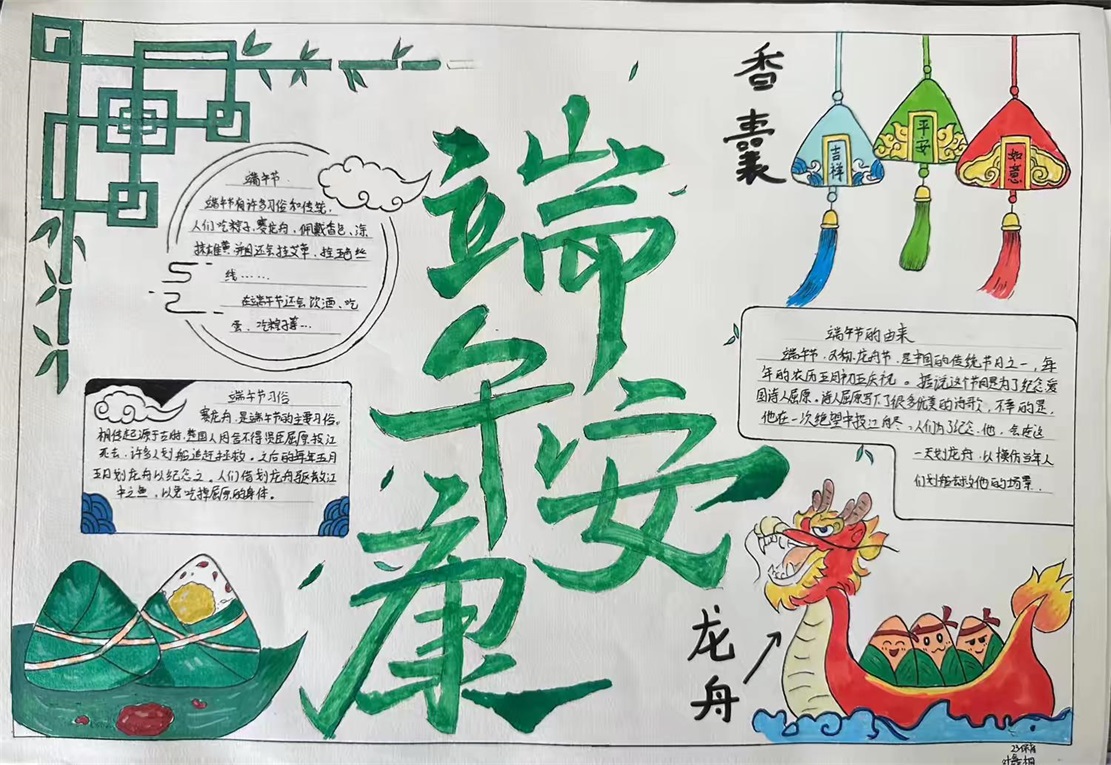 端午安康
香囊
吉祥
平安
如意
端午节
端午节有许多习俗和传统,
人们吃粽子、赛龙舟、佩戴香包、涂
抹雄黄,并且还会挂艾草、拴五色丝
线……
在端午节还会饮酒、吃
蛋、吃粽子等…
端午节的由来
端午节,又称龙舟节,是中国的传统节日之一,每
年的农历五月初五庆祝。据说这个节日是为了纪念爱
国诗人屈原。诗人屈原写下了很多优美的诗歌,不幸的是,
他在一次绝望中投江自尽,人们为了纪念他,会在这
一天划龙舟,以模仿当年人
们划船去救他的场景.
端午节习俗
赛龙舟,是端午节的主要习俗。
相传起源于古时楚国人因舍不得贤臣屈原投江
死去,许多人划船追赶拯救。之后的每年五月
五日划龙舟以纪念之。人们借划龙舟驱散江
中之鱼,以免吃掉屈原的身体。
龙舟